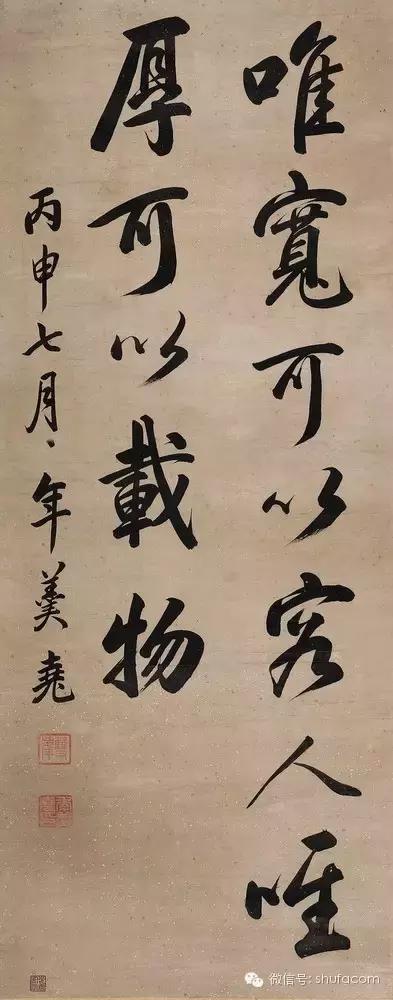 唯寬可以容人唯
厚可以載物
丙申七月年羹堯
微信号: shufacom